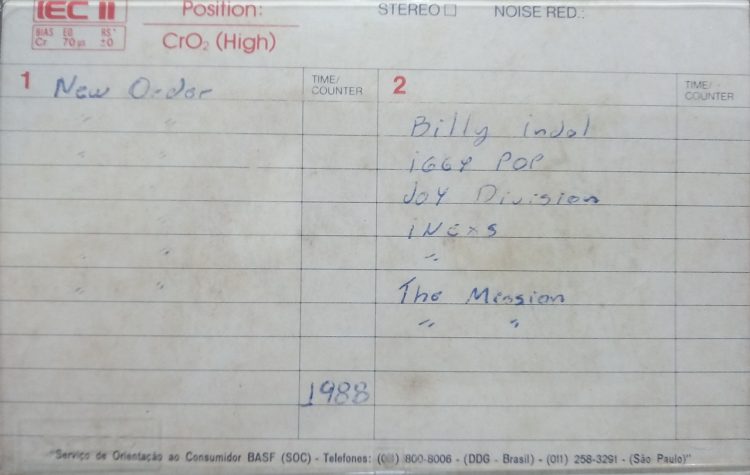 IEC II
Position:
CrO₂ (High)
BIAS EQ RS*
Cr 70 µs ±0
STEREO ☐ NOISE RED.:
1 New Order
TIME/
COUNTER
2
TIME/
COUNTER
" "
" "
" "
" "
Billy indol
iGGY POP
JOY Division
iNExs
"
The Mission
" "
1988
"Serviço de Orientação ao Consumidor BASF (SOC) - Telefones: ( ) 800-8006 - (DDG - Brasil) - (011) 258-3291 - (São Paulo)"